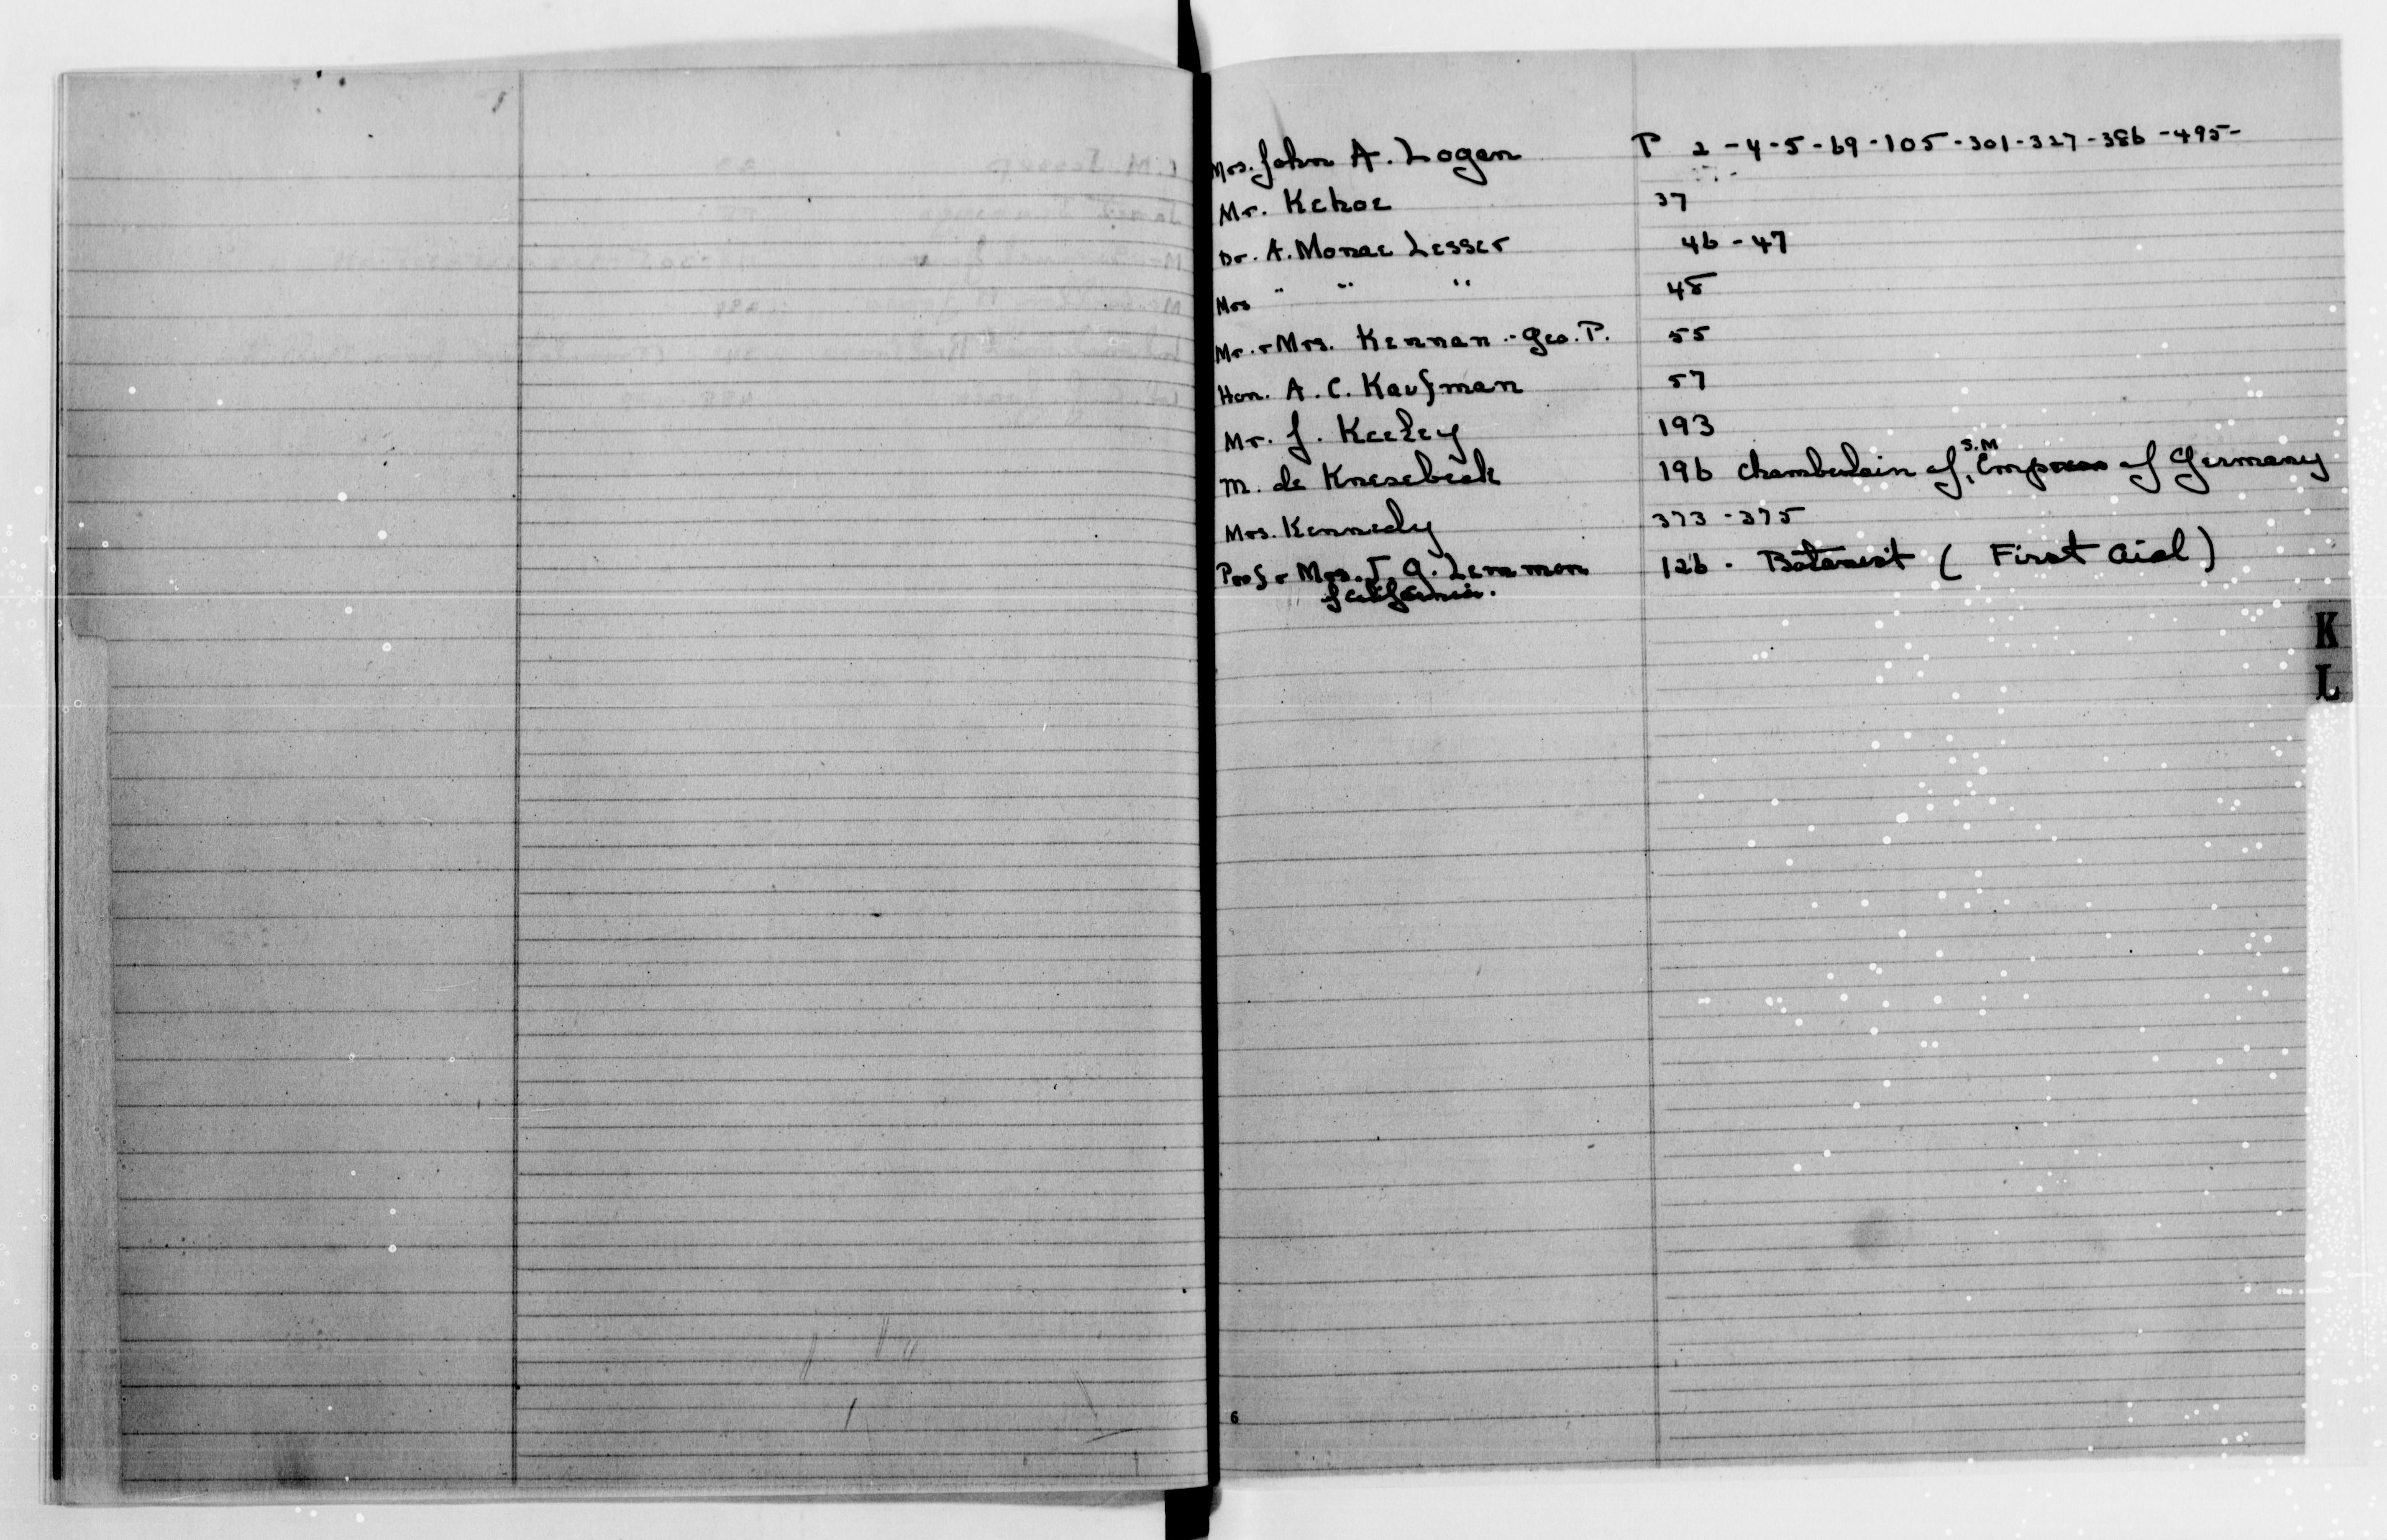 Mrs. John A. Logan P 2-4-5-69-105-301-327-386-495-
Mr. Kehoe 37
Dr. A. Monae Lesser 46-47
Mrs " " " 48
Mr. & Mrs. Kennan - Geo. P. 55
Hon. A. C. Kaufman 57
Mr. J. Keeley 193
S.M
M. de Knesebeck 196 Chamberlain of Empress of Germany
Mrs. Kennedy 373-375
Prof & Mrs. J. G. Lemmon 126. Botanist (First Aid)
California.
K
L
6